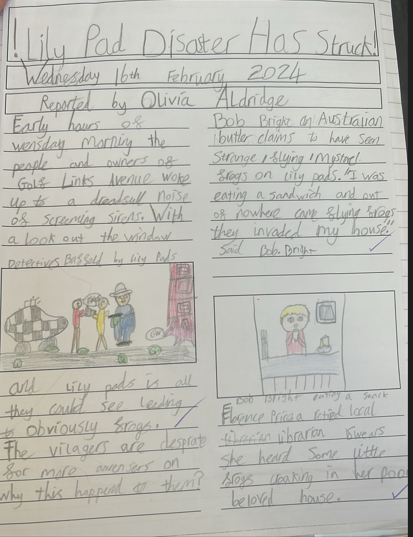 !Lily Pad Disater Has Struck!
Wednesday 16th February 2024
Reported by Olivia Aldridge
Early hours of
wensday morning the
people and owners of
Golf Links Avenue woke
up to a dreadfull noise
of screaming sirens. With
a look out the window
Detectives Baffald by lily Pads
and lily pads is all
they could see leeding
to obviously frogs.
The vilagers are desprate
for more awensers on
why this happend to them?
Bob Bright an Australian
butler claims to have seen
Strange, flying, mysterel
frogs on lily pads. "I was
eating a sandwich and out
of nowhere came flying frogs
they invaded my house."
Said Bob. Bright
Bob Bright eating a snack
Florence Price a retied local
librarian Swears
she heard Some little
frogs croaking in her poor
beloved house.